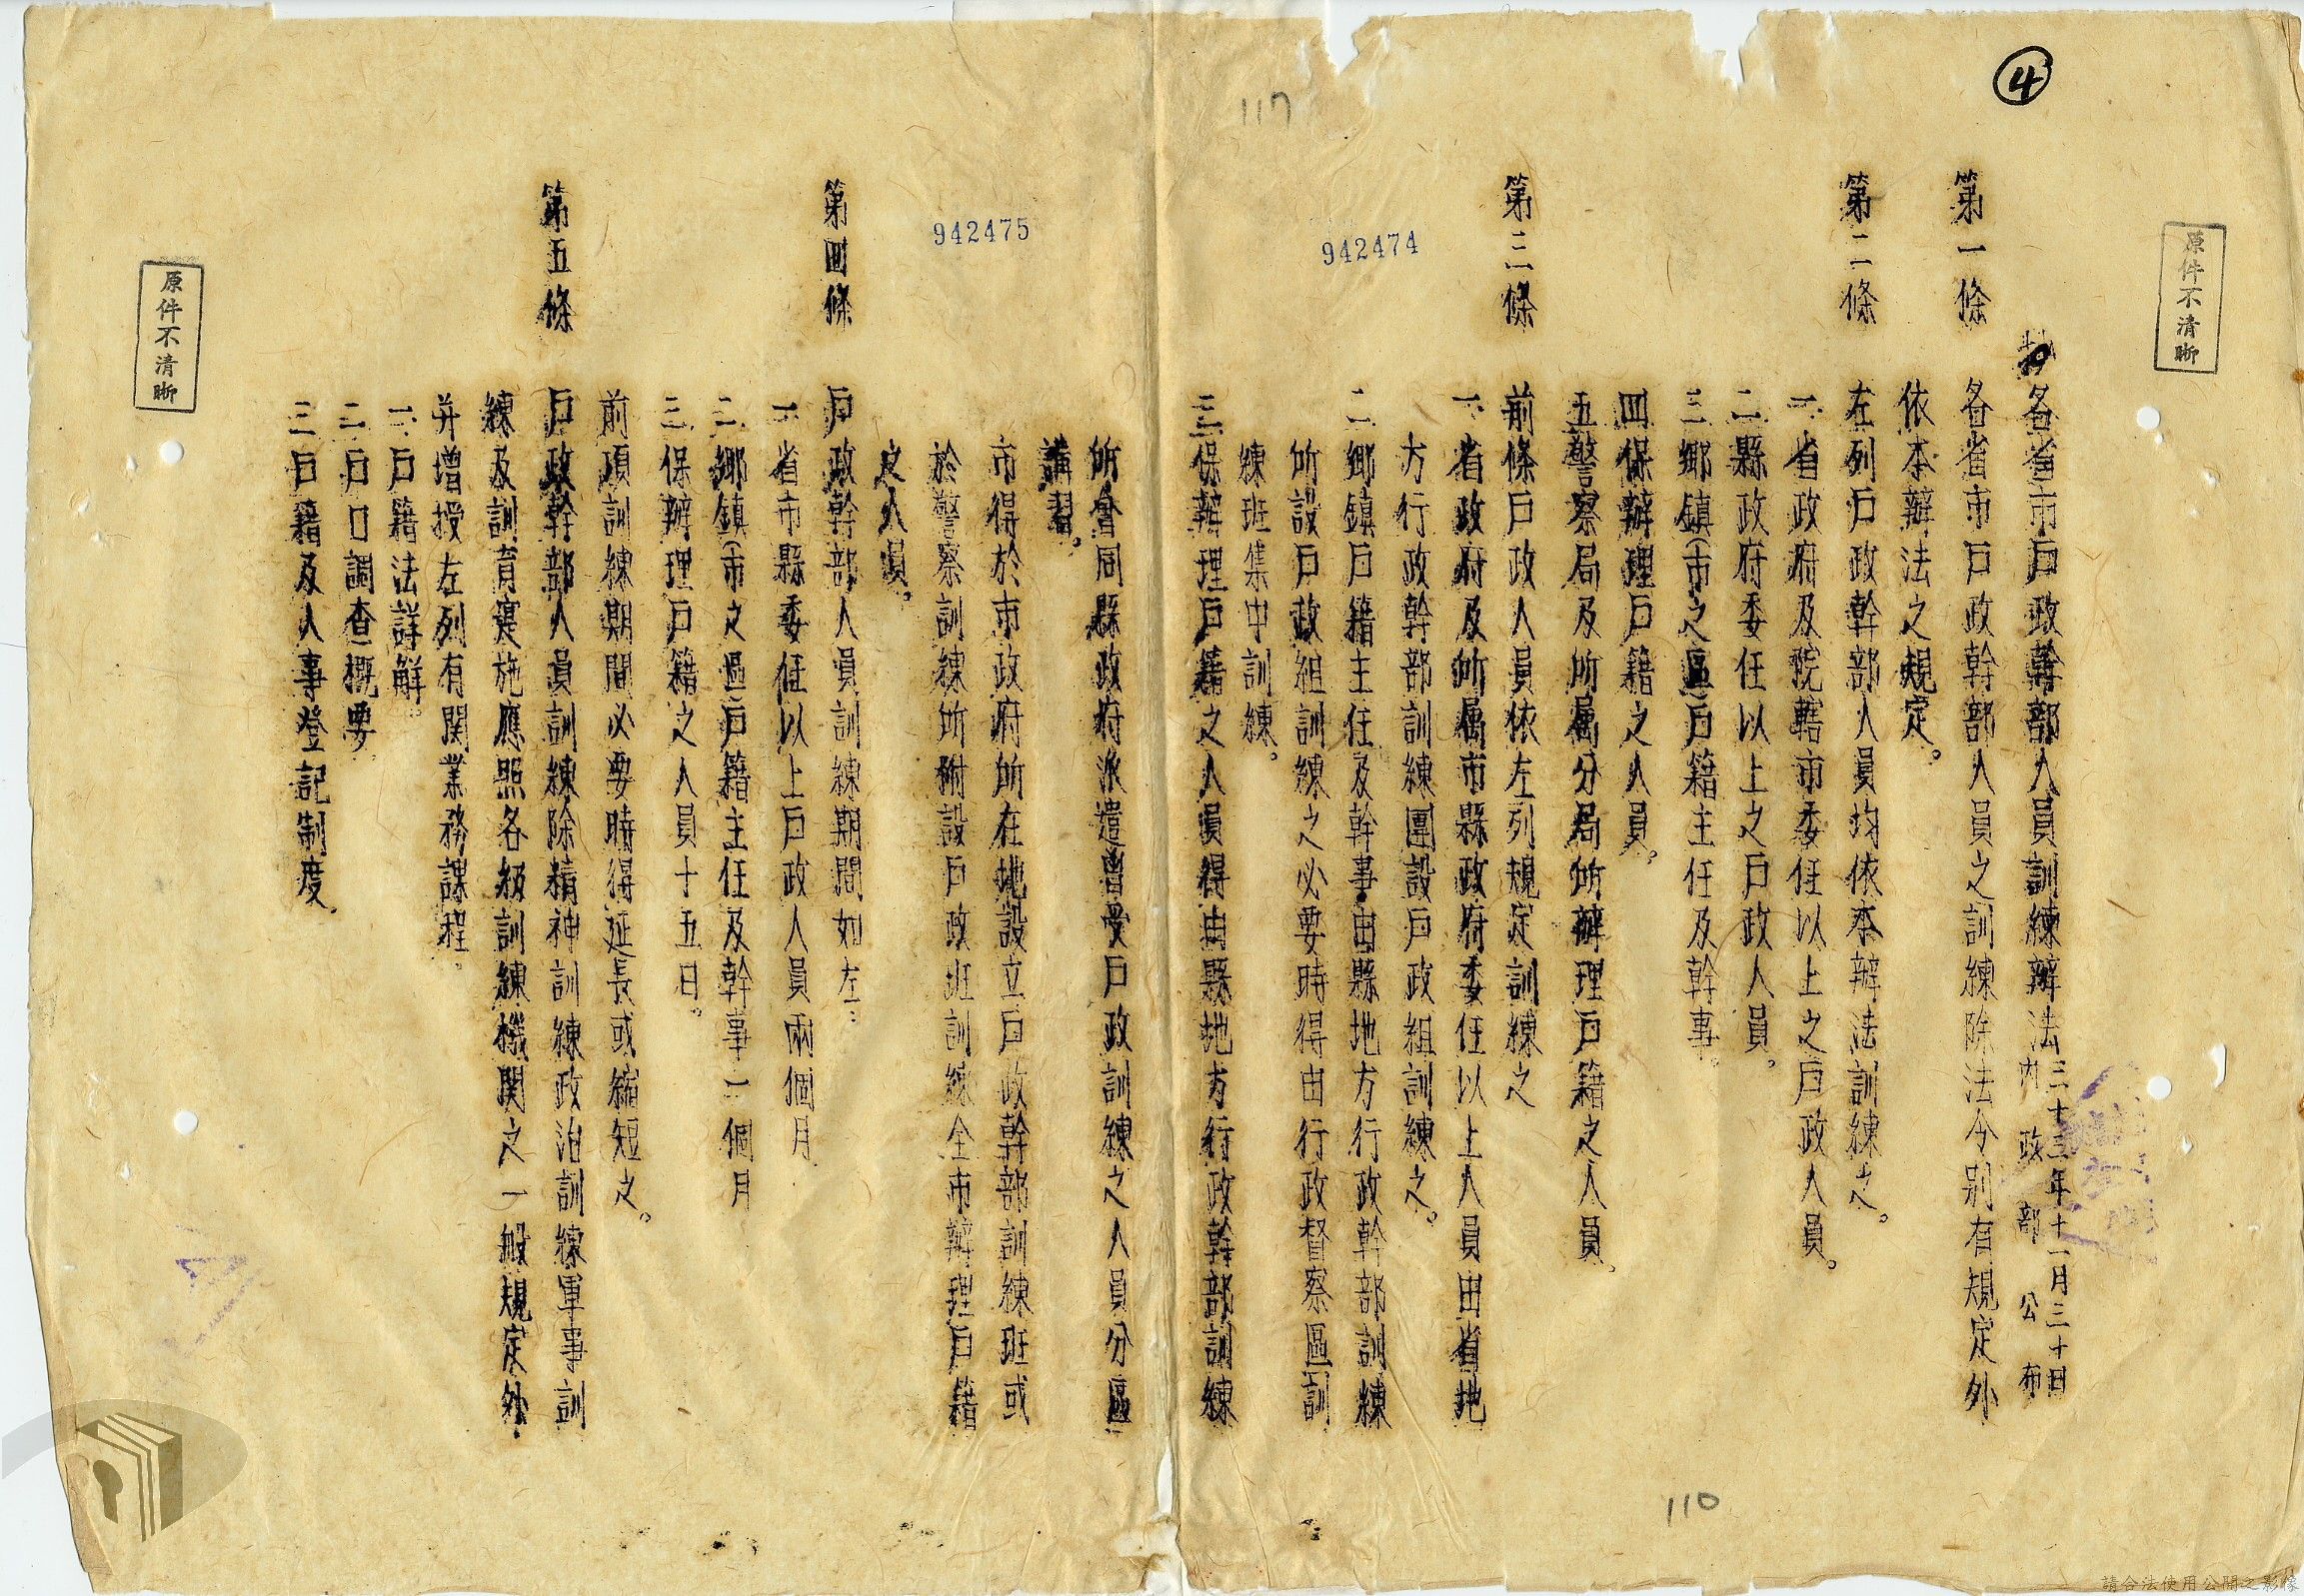 ④
原件不清晰
各省市戶政幹部人員訓練辦法
三十三年十一月三十日
內政部公布
第一條 各省市戶政幹部人員之訓練除法令別有規定外
依本辦法之規定。
第二條 左列戶政幹部人員均依本辦法訓練之。
一、省政府及院轄市委任以上之戶政人員。
二、縣政府委任以上之戶政人員。
三、鄉鎮(市之區)戶籍主任及幹事。
四、保辦理戶籍之人員。
五、警察局及所屬分局所辦理戶籍之人員。
第三條 前條戶政人員依左列規定訓練之
一、省政府及所屬市縣政府委任以上人員由省地
方行政幹部訓練團設戶政組訓練之。
942474
二、鄉鎮戶籍主任及幹事由縣地方行政幹部訓練
所設戶政組訓練之必要時得由行政督察區訓
練班集中訓練。
三、保辦理戶籍之人員得由縣地方行政幹部訓練
117
110
所會同縣政府派遣曾受戶政訓練之人員分區
講習。
942475
市得於市政府所在地設立戶政幹部訓練班或
於警察訓練所附設戶政班訓練全市辦理戶籍
之人員。
第四條 戶政幹部人員訓練期間如左:
一、省市縣委任以上戶政人員兩個月
二、鄉鎮(市之區)戶籍主任及幹事一個月
三、保辦理戶籍之人員十五日。
前項訓練期間必要時得延長或縮短之。
第五條 戶政幹部人員訓練除精神訓練政治訓練軍事訓
練及訓育實施應照各級訓練機関之一般規定外
并增授左列有関業務課程。
一、戶籍法詳解。
二、戶口調查概要
三、戶籍及人事登記制度。
原件不清晰
請合法使用公開之影像